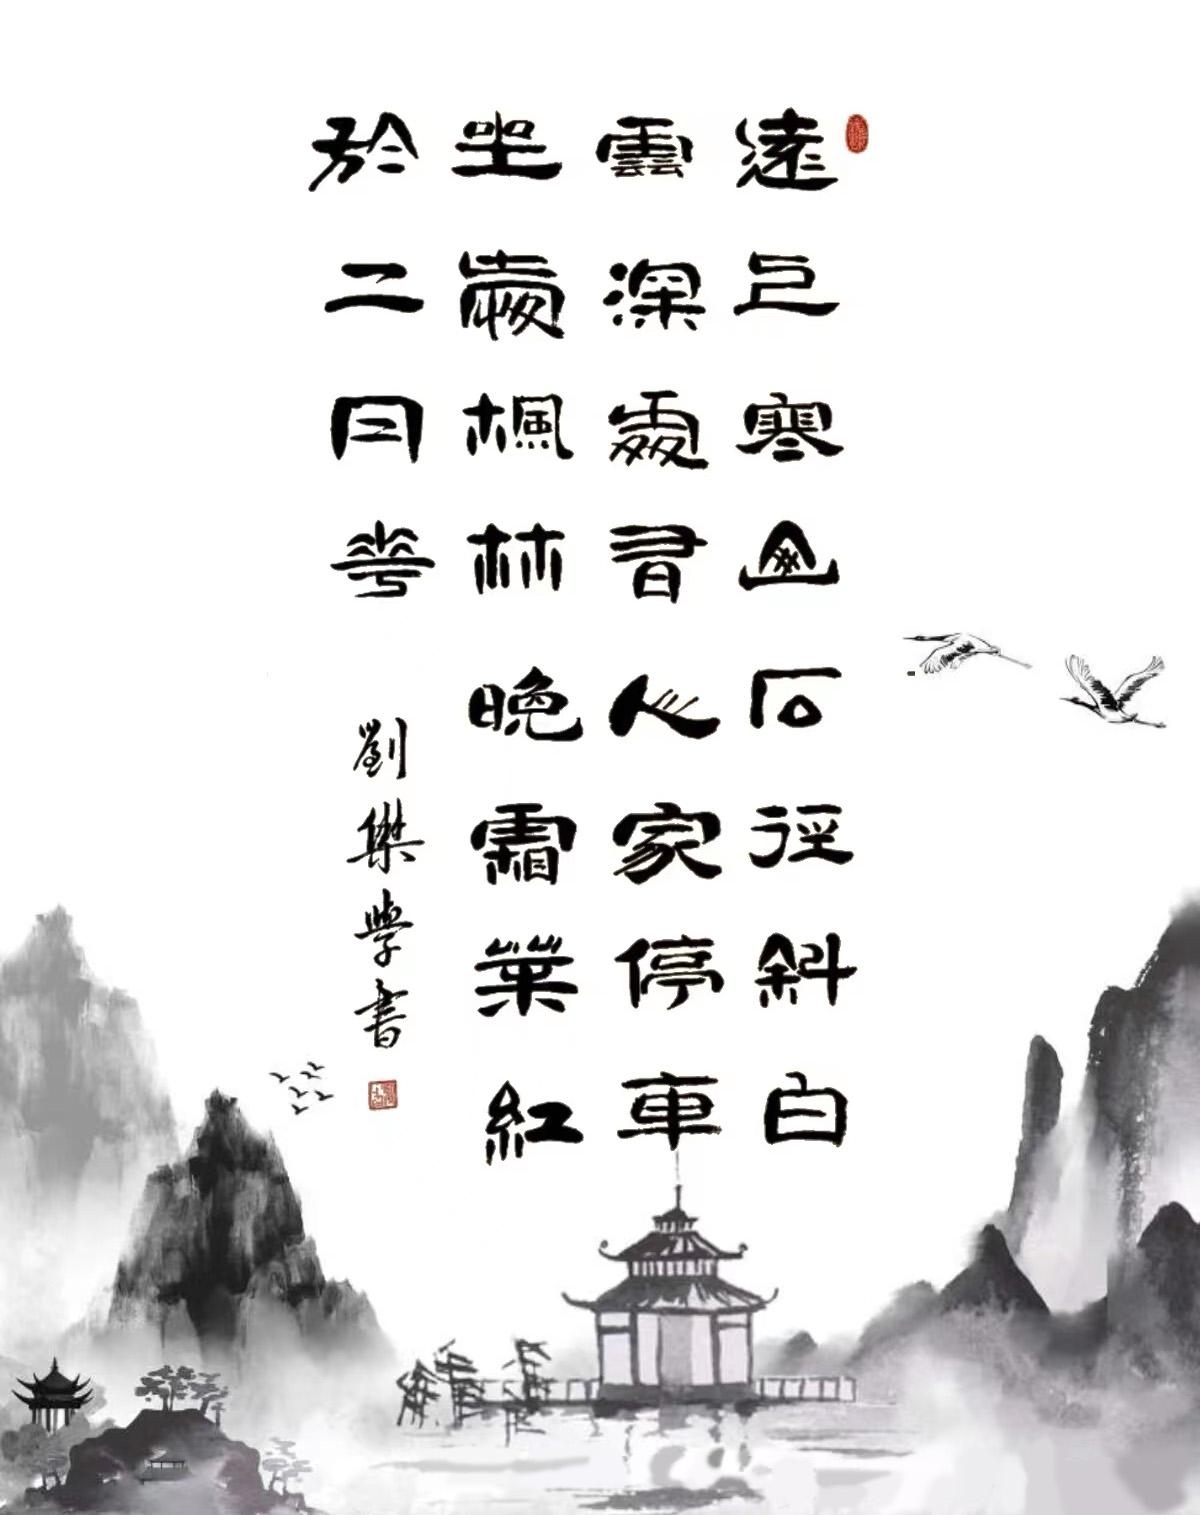 遠上寒山石徑斜白
雲深處有人家停車
坐愛楓林晚霜葉紅
於二月花
劉傑學書